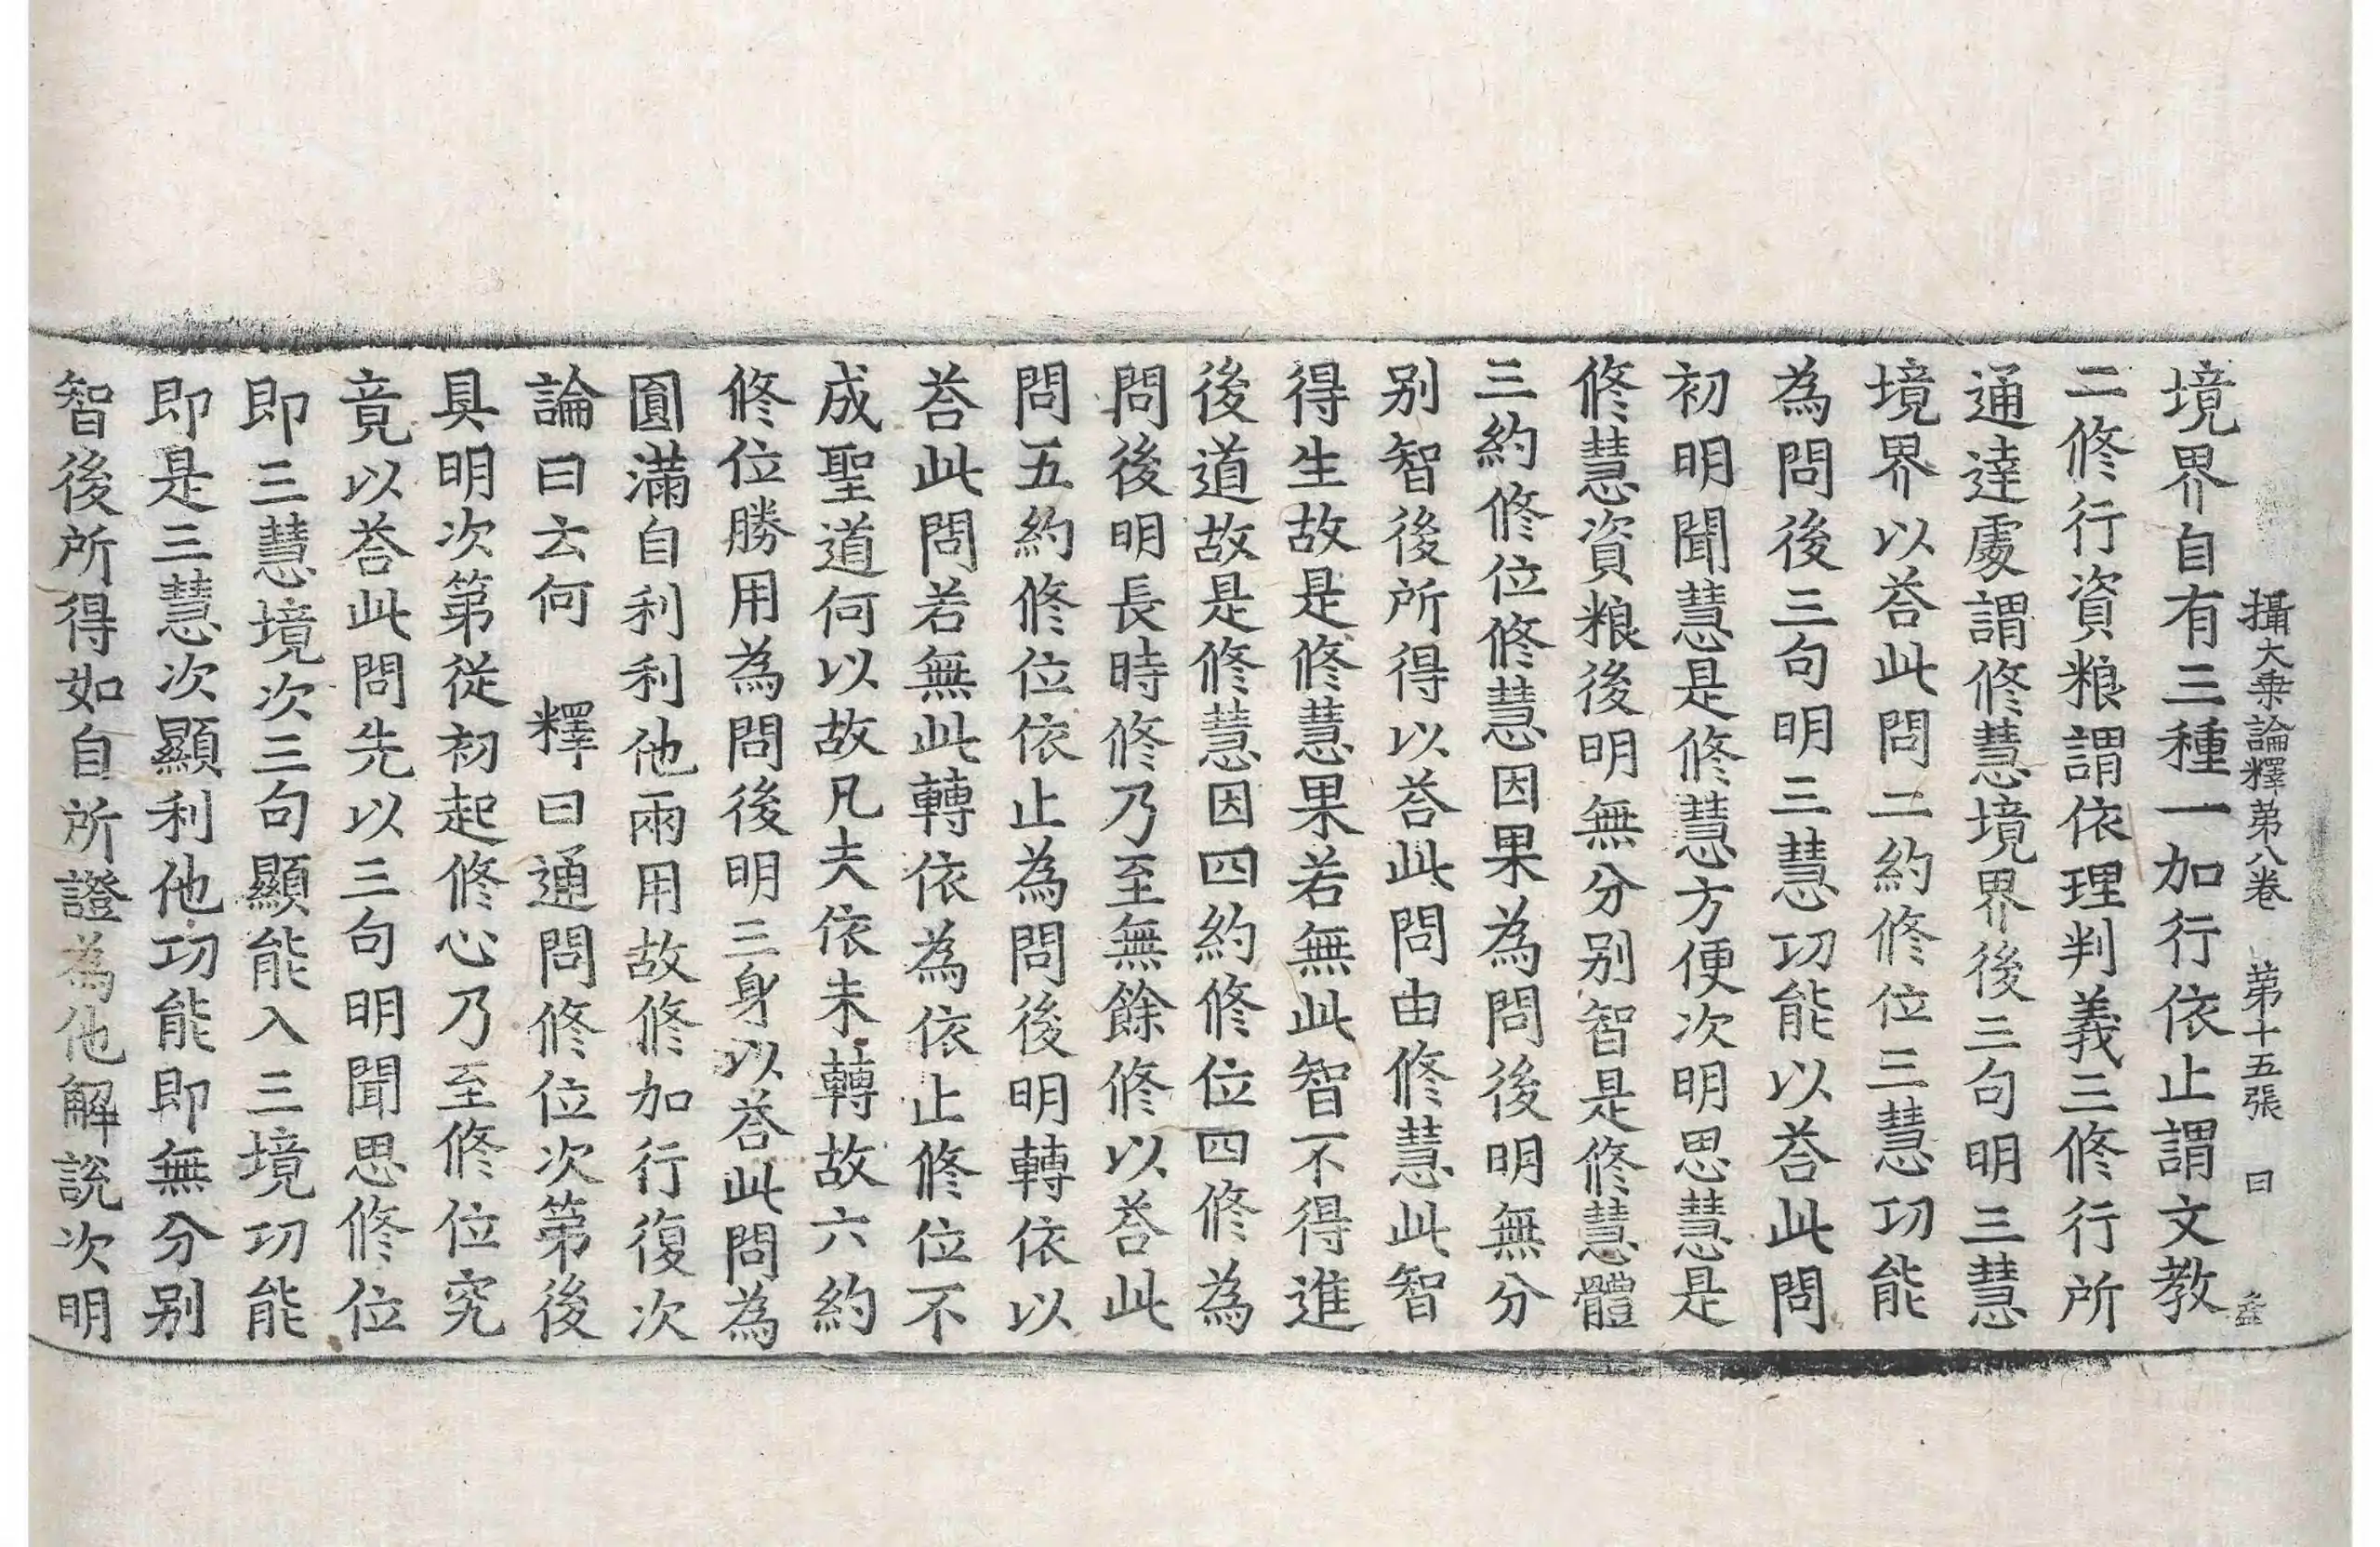 攝大乗論釋苐八卷 苐十五張 曰
境界自有三種一加行依止謂文教
二修行資粮謂依理判義三修行所
通達處謂修慧境界後三句明三慧
境界以荅此問二約修位三慧功能
為問後三句明三慧功能以荅此問
初明聞慧是修慧方便次明思慧是
修慧資粮後明無分别智是修慧體
三約修位修慧因果為問後明無分
别智後所得以荅此問由修慧此智
得生故是修慧果若無此智不得進
後道故是修慧因四約修位四修為
問後明長時修乃至無餘修以荅此
問五約修位依止為問後明轉依以
荅此問若無此轉依為依止修位不
成聖道何以故凡夫依未轉故六約
修位勝用為問後明三身以荅此問為
圓滿自利利他兩用故修加行復次
論曰云何 釋曰通問修位次第後
具明次第從初起修心乃至修位究
竟以荅此問先以三句明聞思修位
即三慧境次三句顯能入三境功能
即是三慧次顯利他功能即無分别
智後所得如自所證為他解説次明